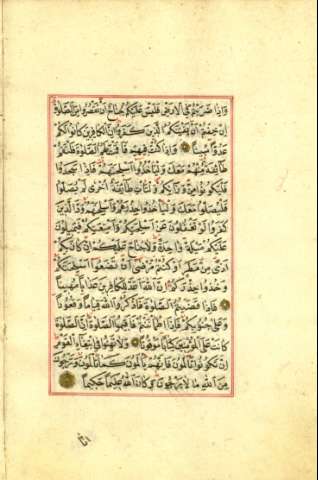 وَاِذَا ضَرَبْتُمْ فِى الْاَرْضِ فَلَيْسَ عَلَيْكُمْ جُنَاحٌ اَنْ تَقْصُرُوا مِنَ الصَّلٰوةِ
اِنْ خِفْتُمْ اَنْ يَفْتِنَكُمُ الَّذ۪ينَ كَفَرُوا اِنَّ الْكَافِر۪ينَ كَانُوا لَكُمْ
عَدُوًّا مُب۪ينًا وَاِذَا كُنْتَ ف۪يهِمْ فَاَقَمْتَ لَهُمُ الصَّلٰوةَ فَلْتَقُمْ
طَائِفَةٌ مِنْهُمْ مَعَكَ وَلْيَاْخُذُوا اَسْلِحَتَهُمْ فَاِذَا سَجَدُوا
فَلْيَكُونُوا مِنْ وَرَائِكُمْ وَلْتَاْتِ طَائِفَةٌ اُخْرٰى لَمْ يُصَلُّوا
فَلْيُصَلُّوا مَعَكَ وَلْيَاْخُذُوا حِذْرَهُمْ وَاَسْلِحَتَهُمْ وَدَّ الَّذ۪ينَ
كَفَرُوا لَوْ تَغْفُلُونَ عَنْ اَسْلِحَتِكُمْ وَاَمْتِعَتِكُمْ فَيَم۪يلُونَ
عَلَيْكُمْ مَيْلَةً وَاحِدَةً وَلَا جُنَاحَ عَلَيْكُمْ اِنْ كَانَ بِكُمْ
اَذًى مِنْ مَطَرٍ اَوْ كُنْتُمْ مَرْضٰى اَنْ تَضَعُوا اَسْلِحَتَكُمْ
وَخُذُوا حِذْرَكُمْ اِنَّ اللّٰهَ اَعَدَّ لِلْكَافِر۪ينَ عَذَابًا مُه۪ينًا
فَاِذَا قَضَيْتُمُ الصَّلٰوةَ فَاذْكُرُوا اللّٰهَ قِيَامًا وَقُعُودًا
وَعَلٰى جُنُوبِكُمْ فَاِذَا اطْمَاْنَنْتُمْ فَاَق۪يمُوا الصَّلٰوةَ اِنَّ الصَّلٰوةَ
كَانَتْ عَلَى الْمُؤْمِن۪ينَ كِتَابًا مَوْقُوتًا وَلَا تَهِنُوا فِى ابْتِغَاءِ الْقَوْمِ
اِنْ تَكُونُوا تَاْلَمُونَ فَاِنَّهُمْ يَاْلَمُونَ كَمَا تَاْلَمُونَ وَتَرْجُونَ
مِنَ اللّٰهِ مَا لَا يَرْجُونَ وَكَانَ اللّٰهُ عَل۪يمًا حَك۪يمًا
اِنَّا